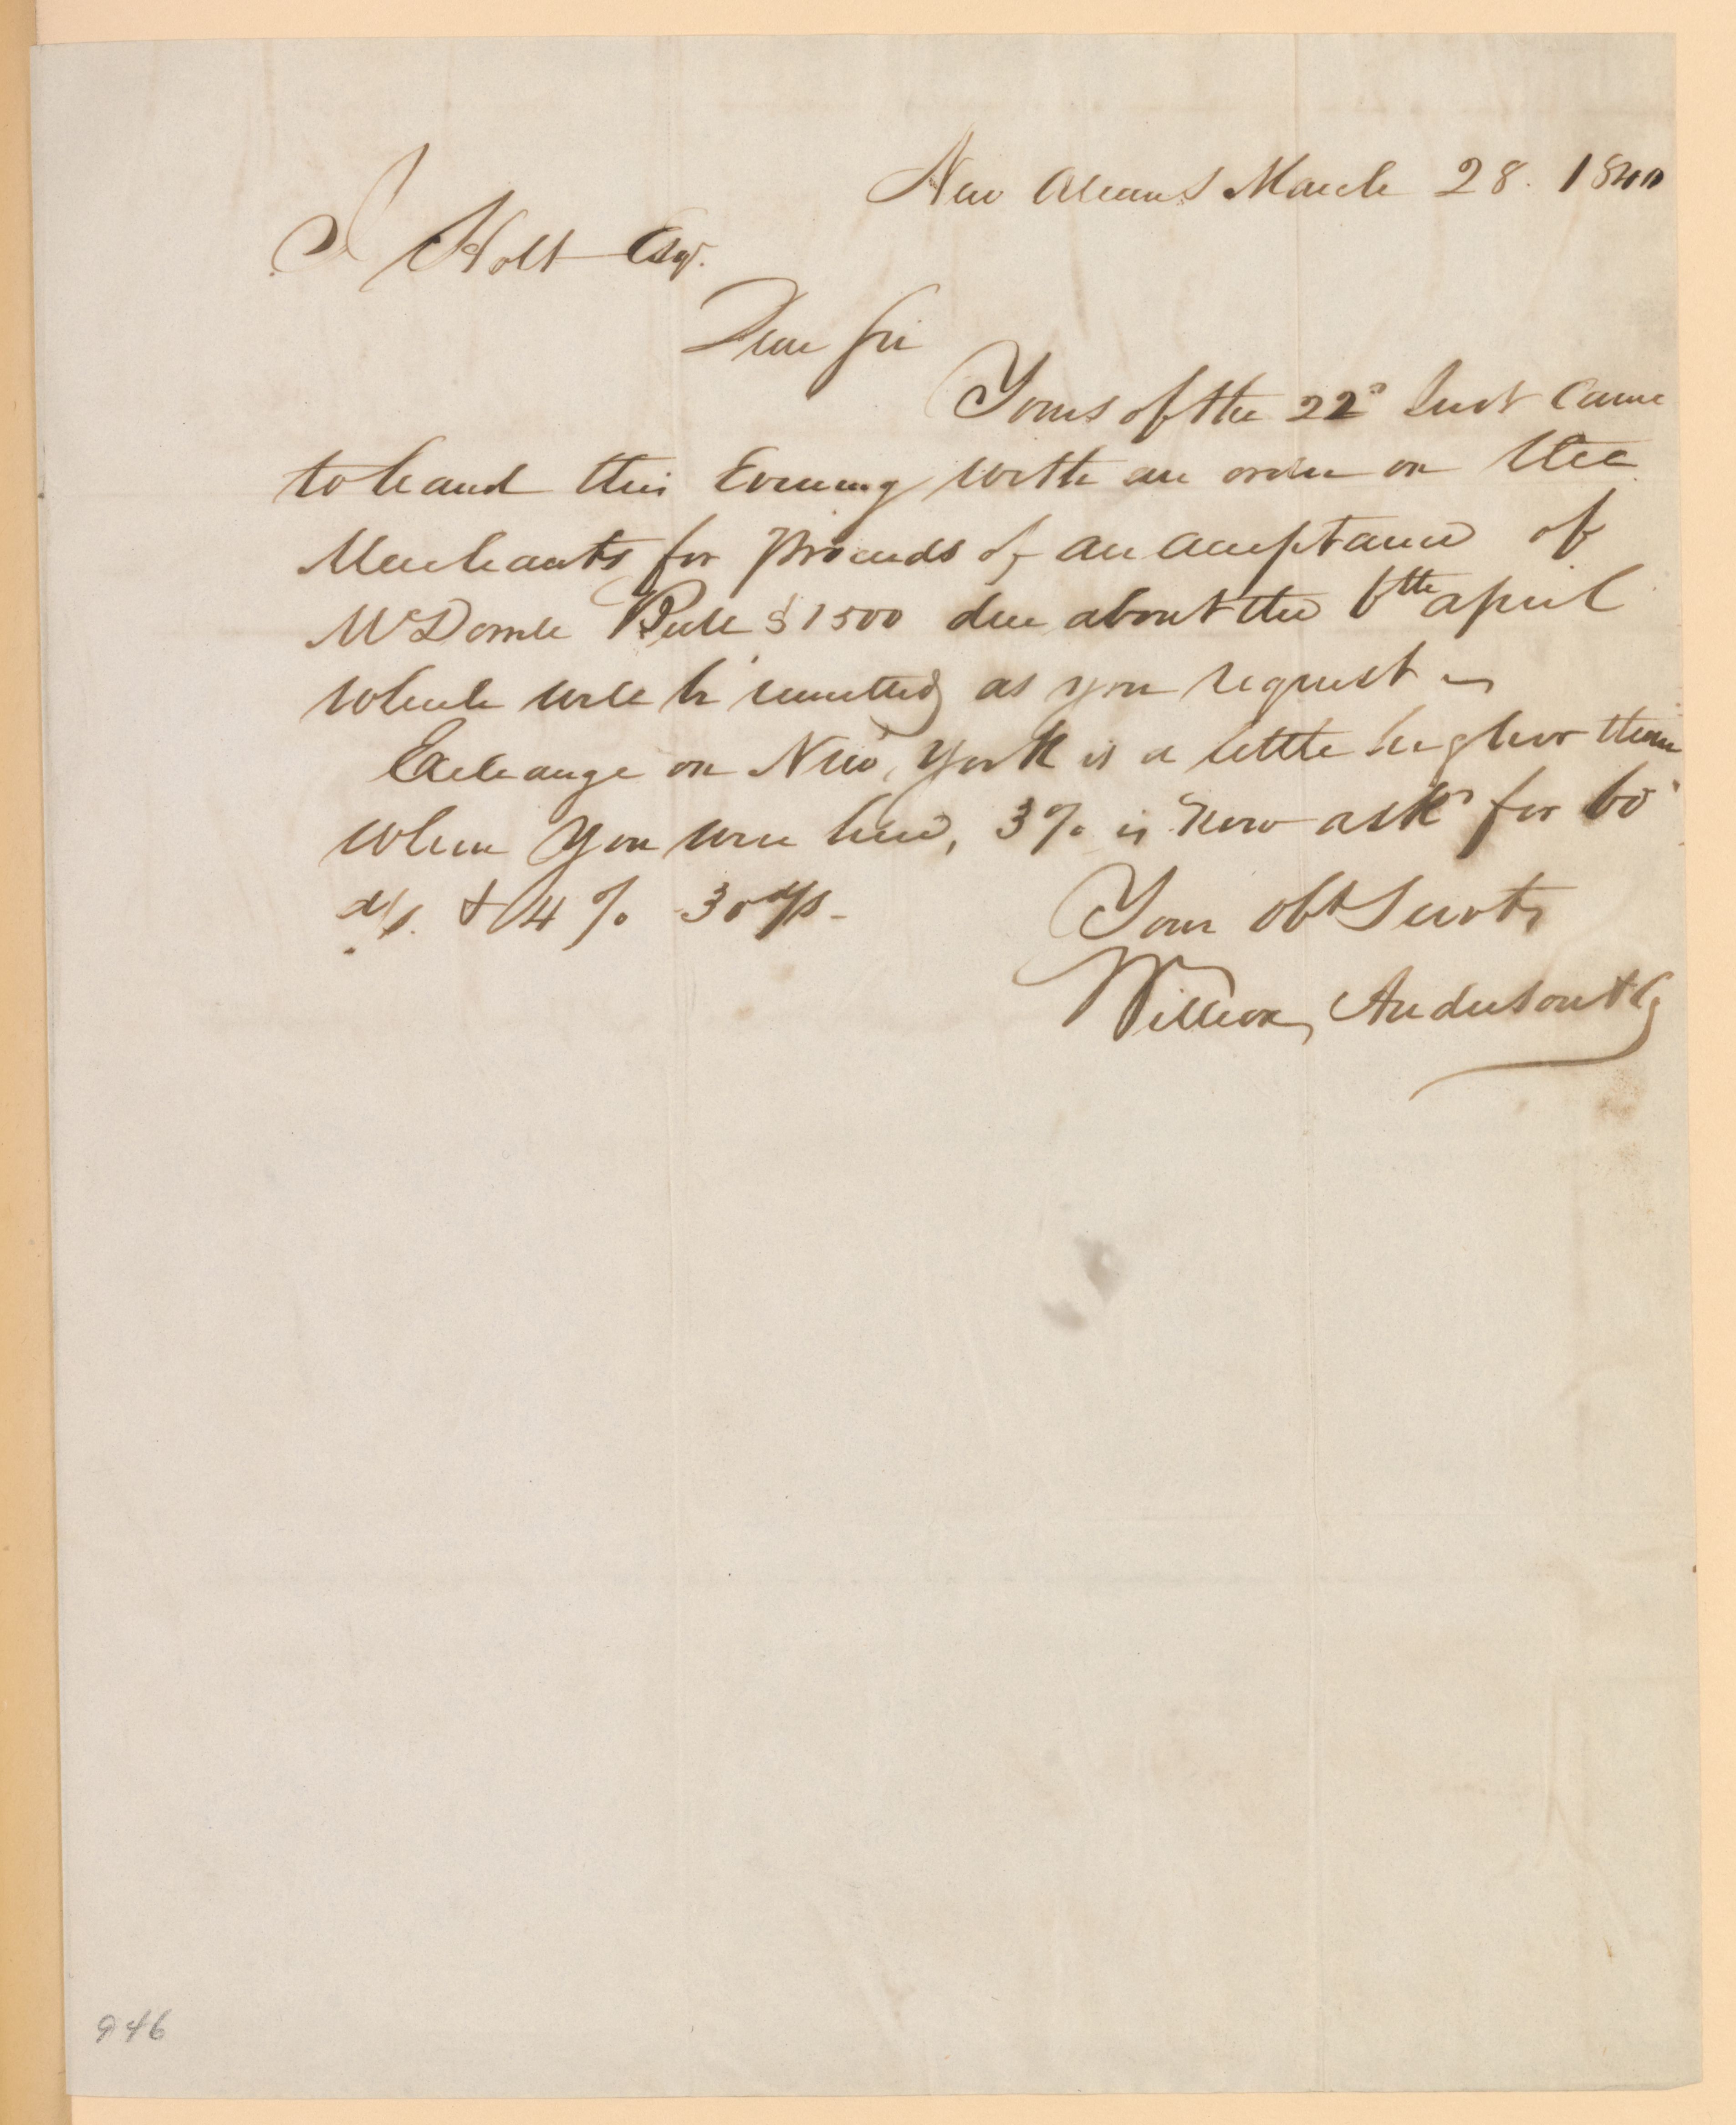 New Orleans March 28. 1840
J Holt Esqr.
Dear Sir
Yours of the 22d Inst Came
to hand this Evening with an order on the
Merchants for proceeds of an acceptance of
$1500 due about the 6th april
which will be remitted as you request
Exchange on New York is a little higher than
when you were here, 3% is now askd for 60
d/s. & 4% 30 d/s -
Your obt Servts
Anderson & Co
946